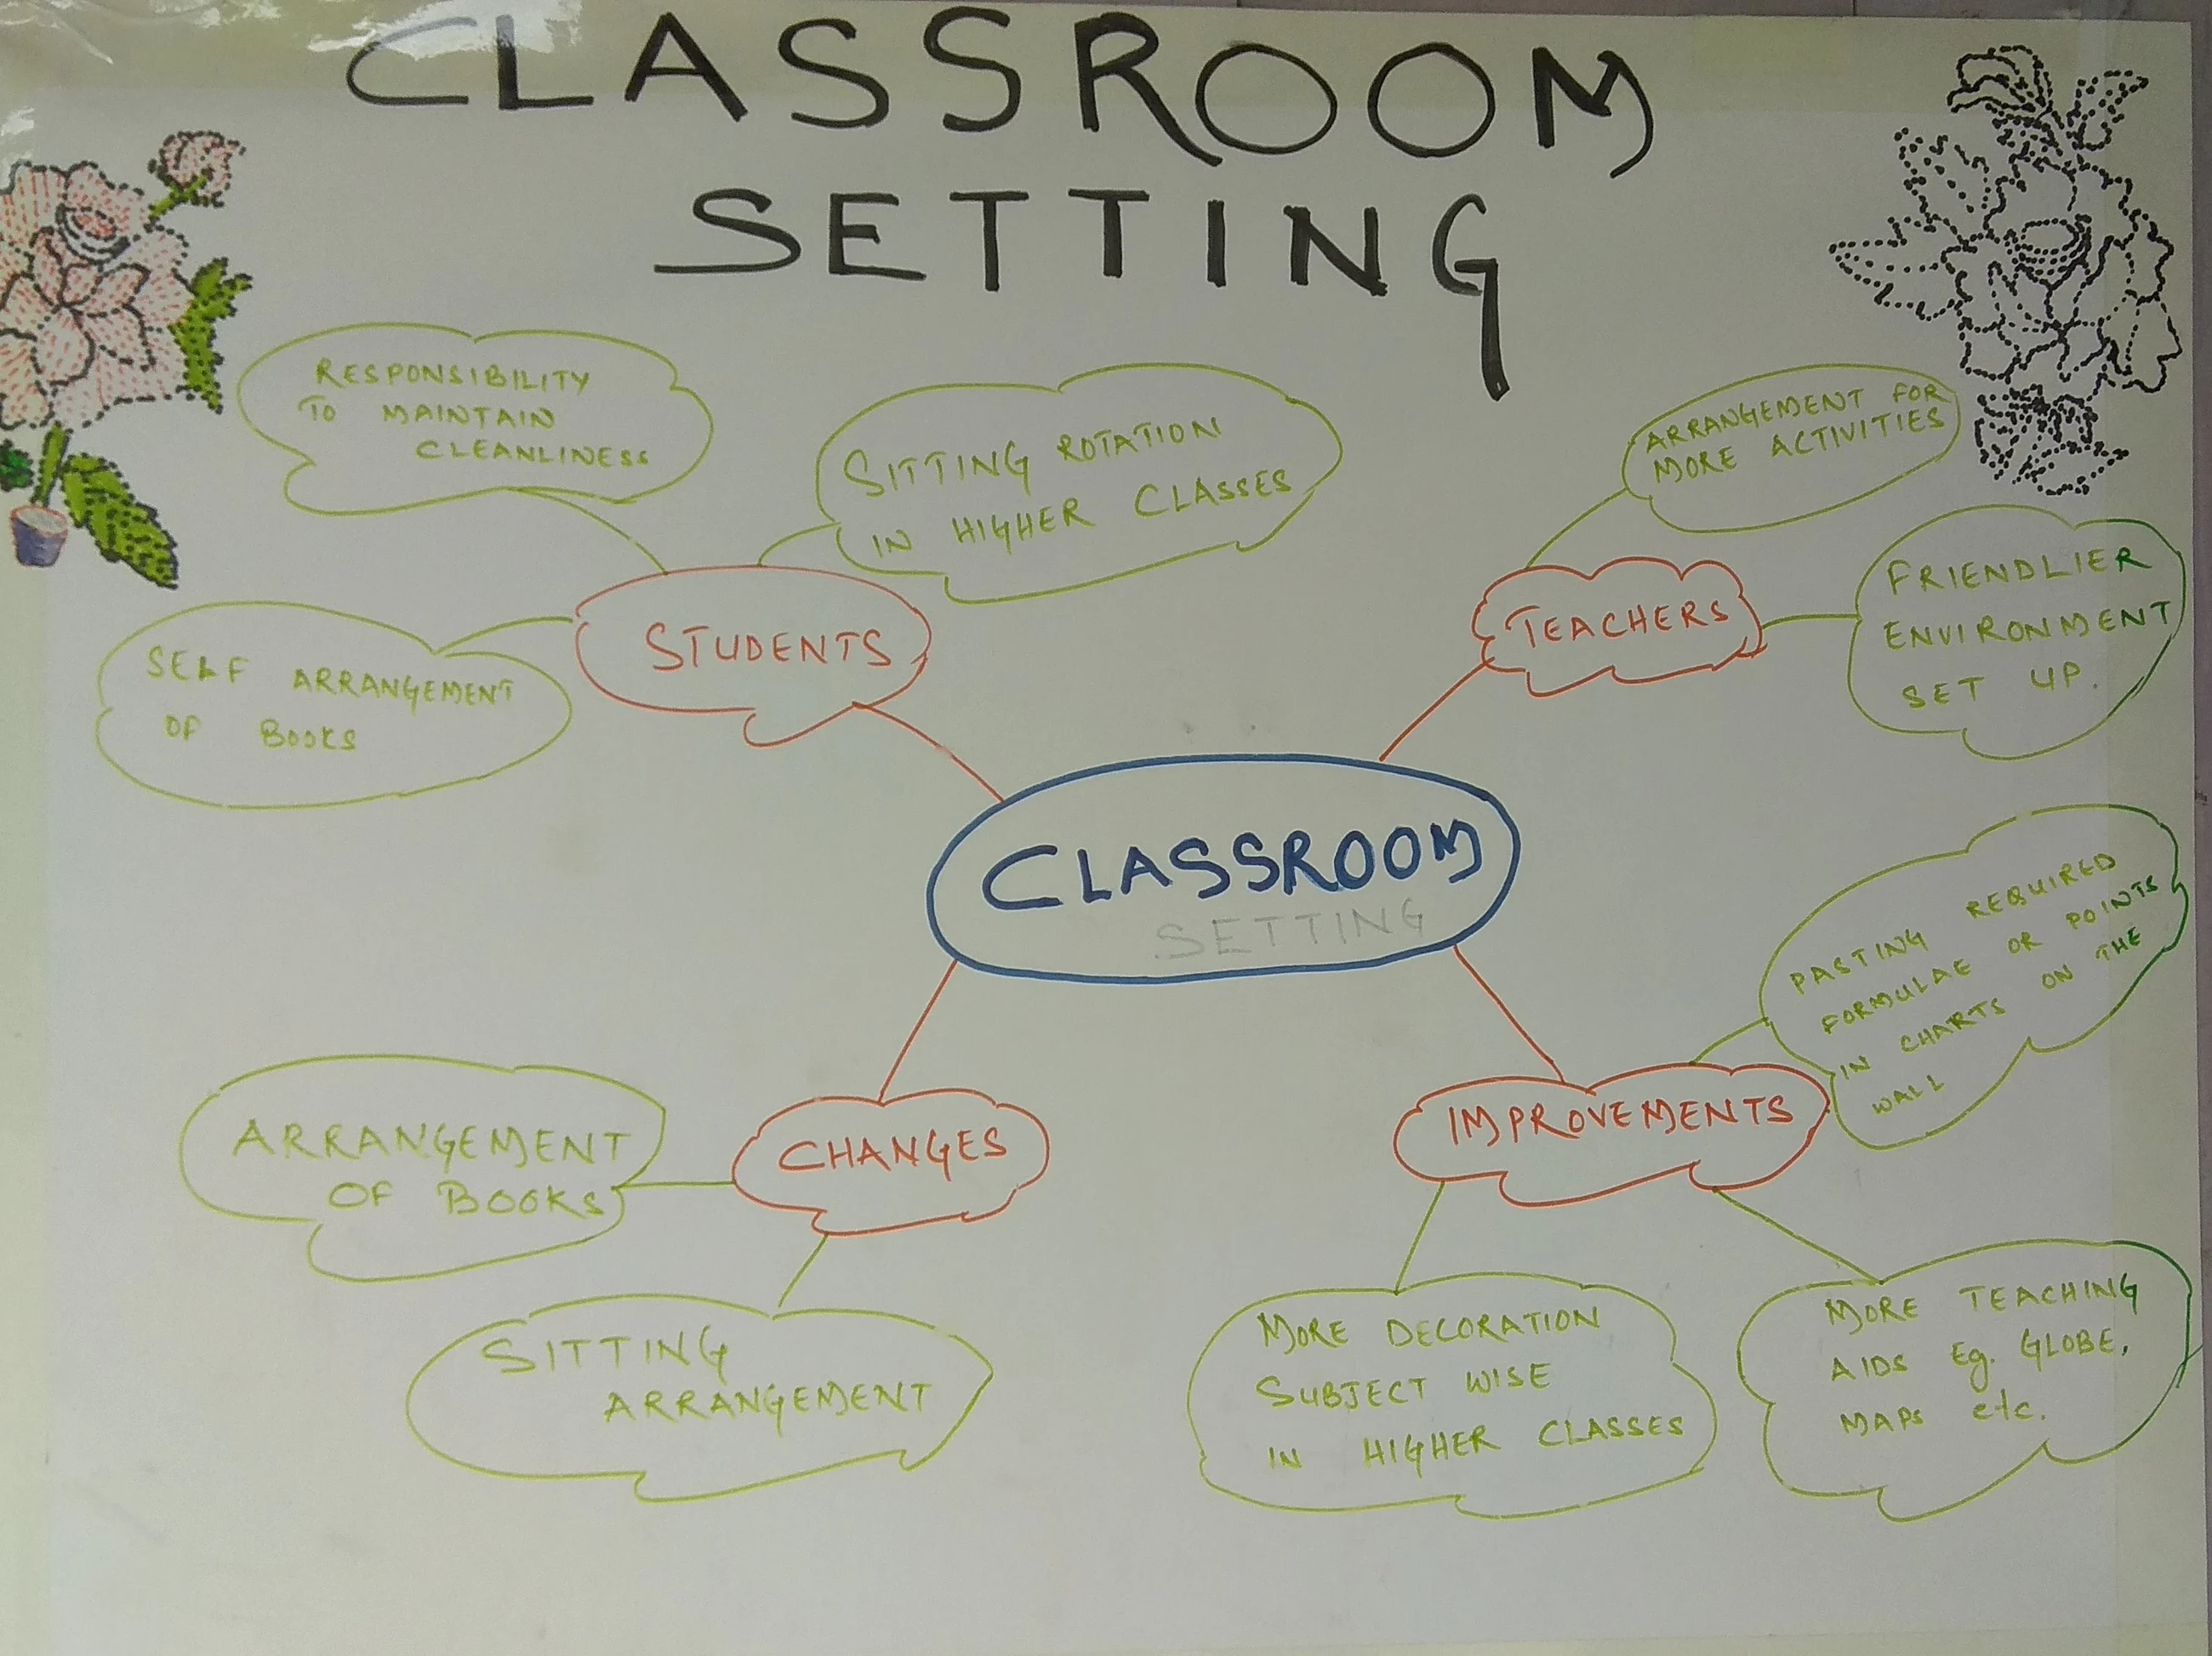 CLASSROOM
SETTING
RESPONSIBILITY
TO MAINTAIN
CLEANLINESS
SITTING ROTATION
IN HIGHER CLASSES
SELF ARRANGEMENT
OF BOOKS
STUDENTS
ARRANGEMENT FOR
MORE ACTIVITIES
TEACHERS
FRIENDLIER
ENVIRONMENT
SET UP.
CLASSROOM
SETTING
ARRANGEMENT
OF BOOKS
CHANGES
SITTING
ARRANGEMENT
PASTING REQUIRED
FORMULAE OR POINTS
IN CHARTS ON THE
WALL
IMPROVEMENTS
MORE DECORATION
SUBJECT WISE
IN HIGHER CLASSES
MORE TEACHING
AIDS Eg. GLOBE,
MAPS etc.